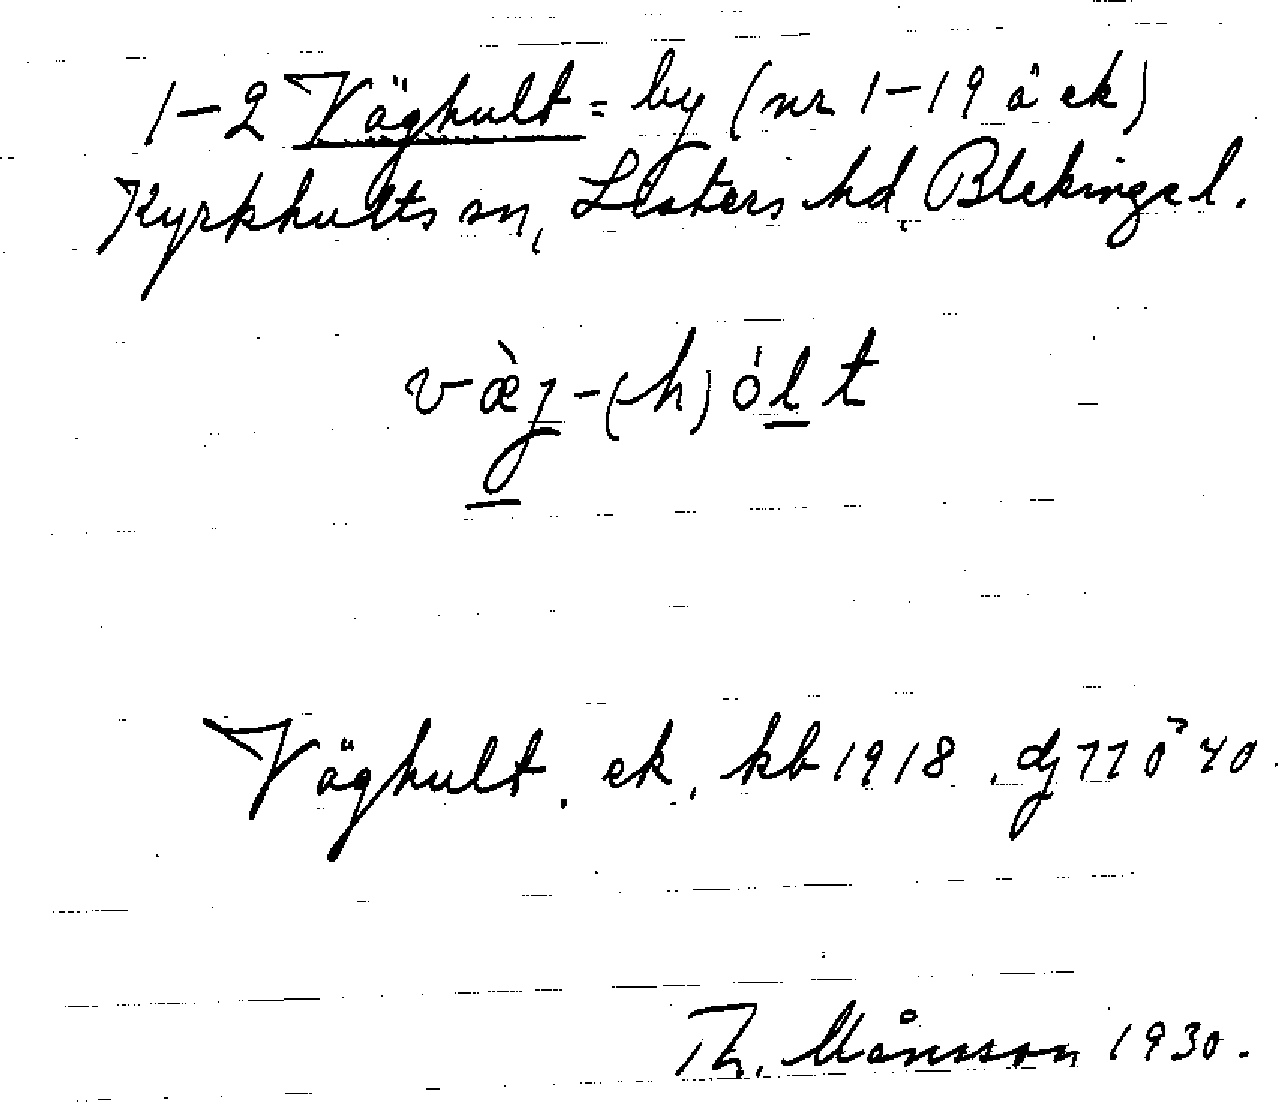 1-2 Väghult = by (nr 1-19 å ek)
Kyrkhults sn, Listers hd, Blekinge l.
væ̀g-(h)ólt
Väghult. ek, kb 1918, dj 77 ö 40.
Th. Månsson 1930.